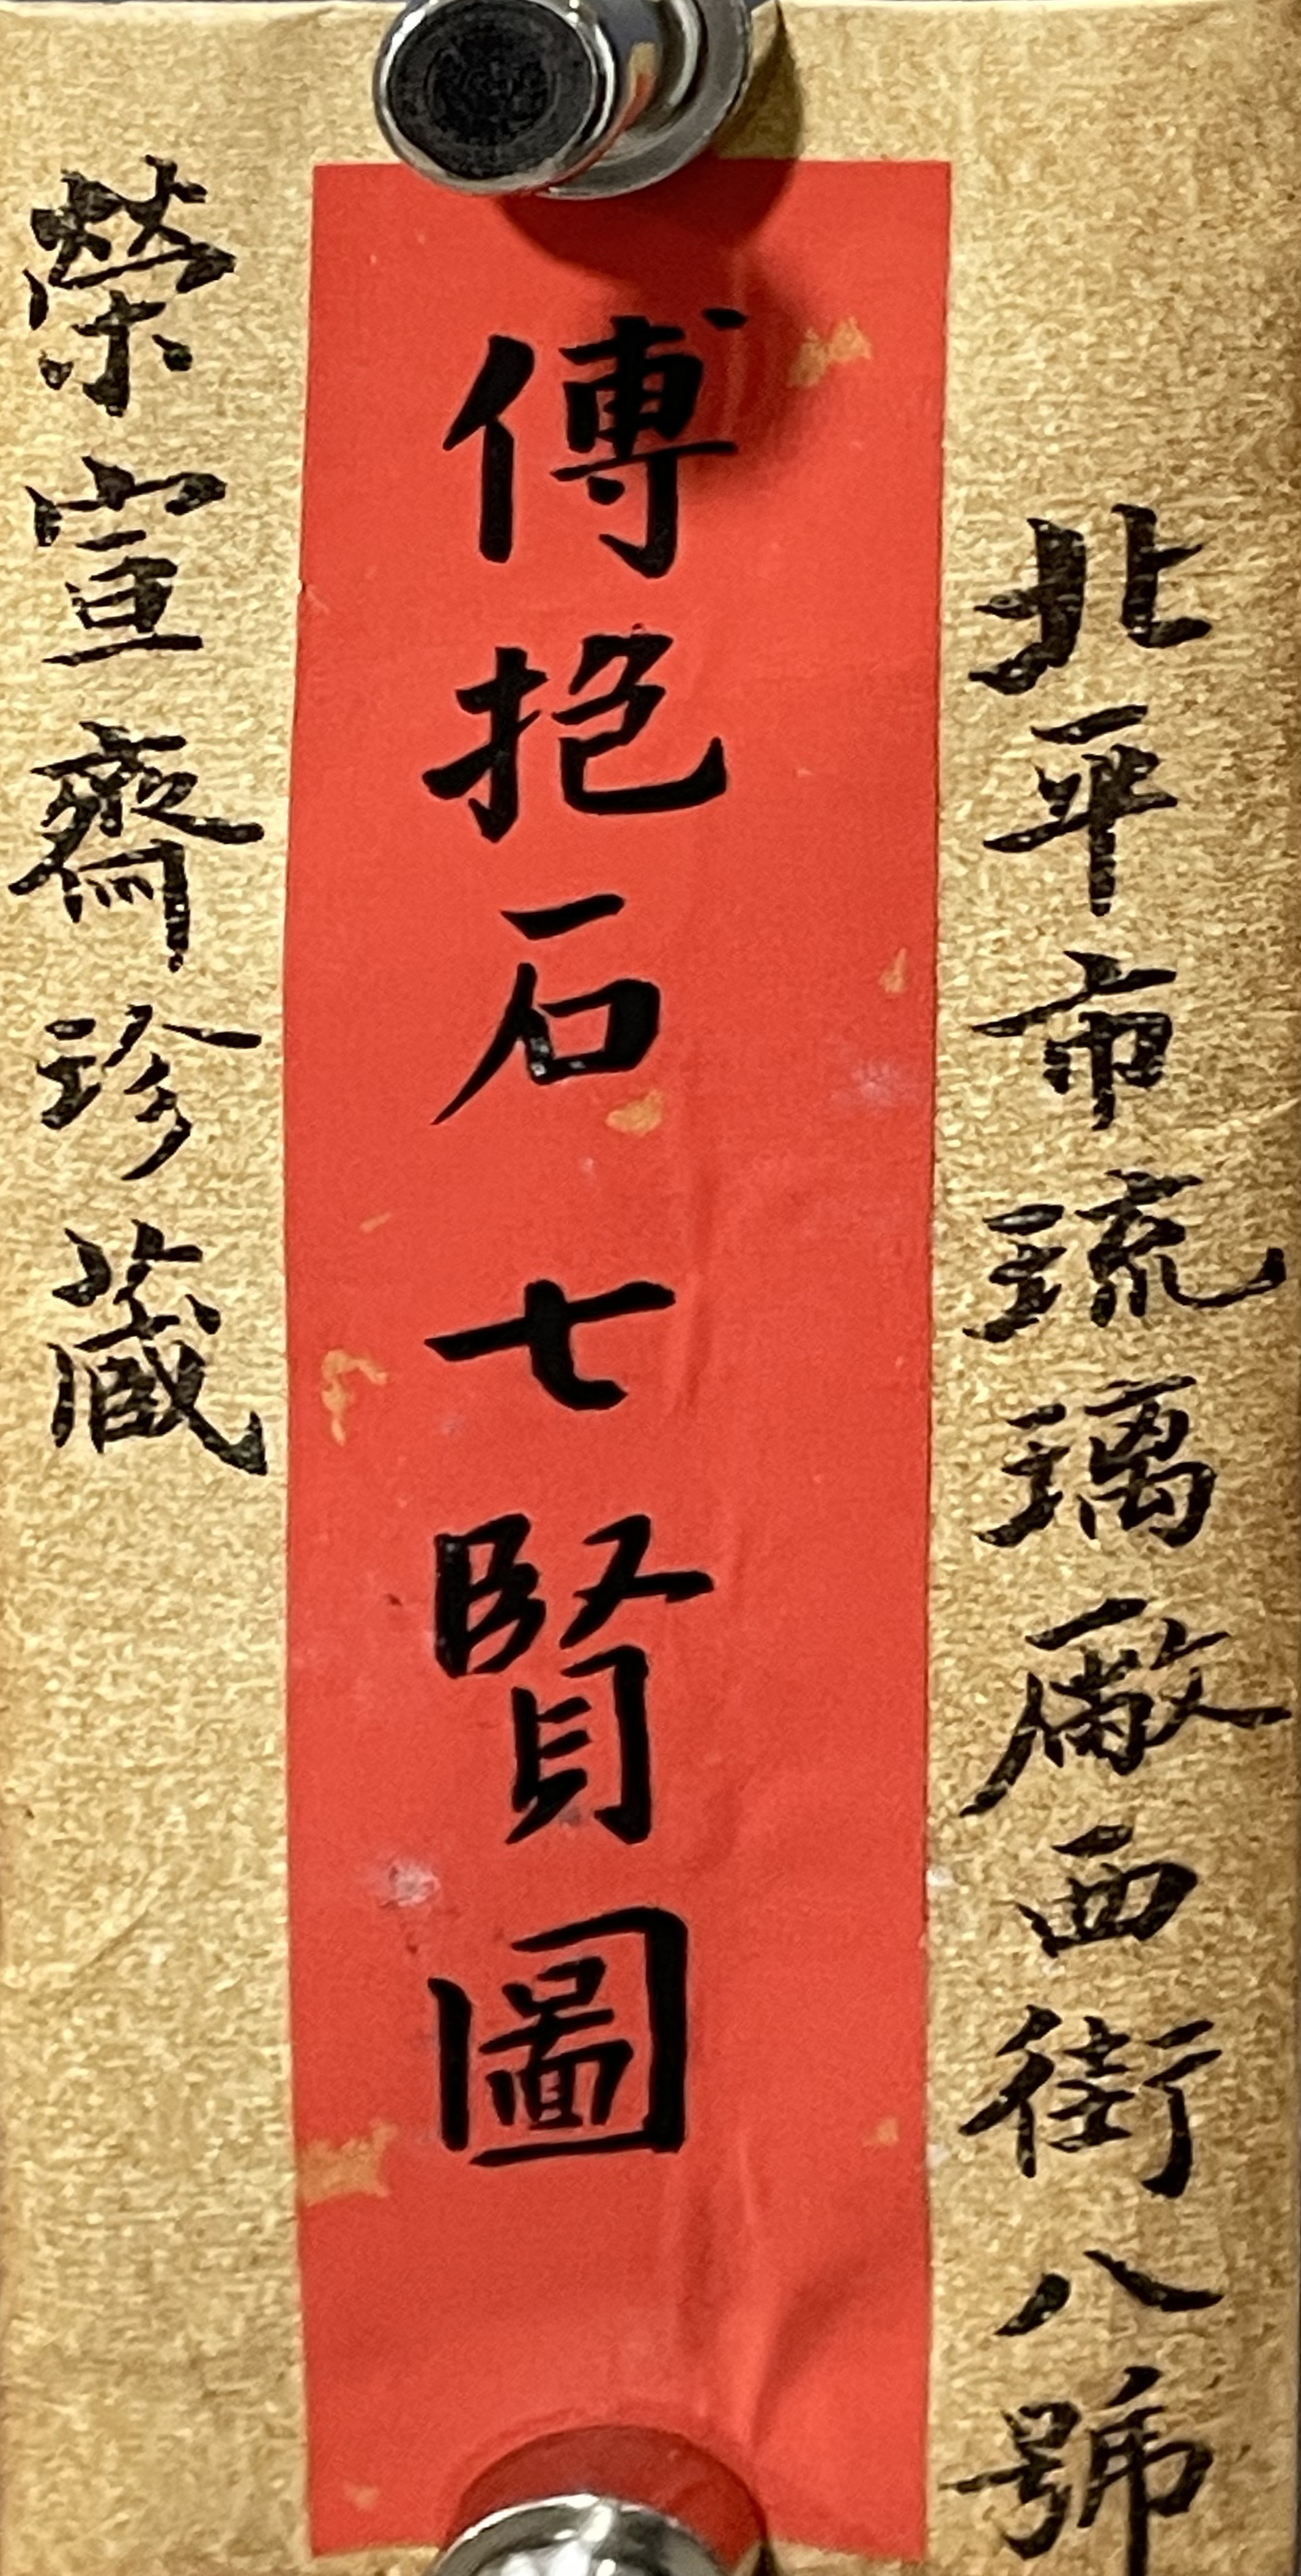 北平市琉璃廠西街八號
傅抱石七賢圖
榮宣齋珍藏